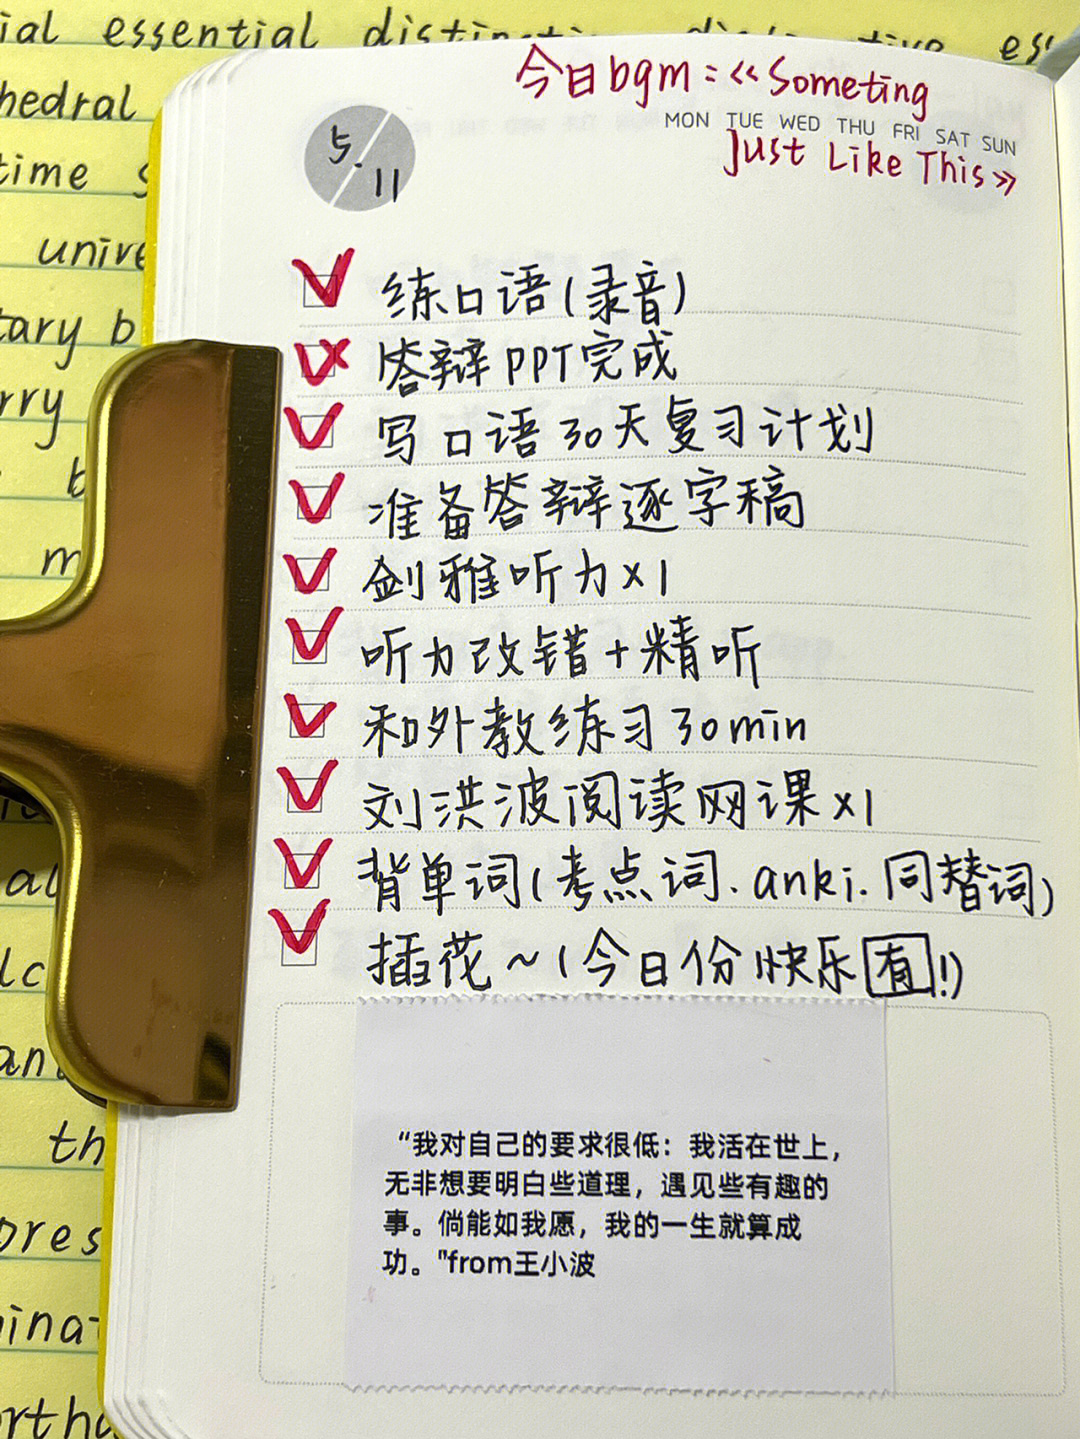 ial essential distinctive
今日bgm:《Someting
hedral
MON TUE WED THU FRI SAT SUN
5.11
Just Like This》
time
unive
练口语(录音)
tary b
答辩PPT完成
rry
写口语30天复习计划
b
准备答辩逐字稿
m
剑雅听力×1
听力改错+精听
和外教练习30min
刘洪波阅读网课×1
al
背单词(考点词.anki.同替词)
lc
插花~(今日份快乐有!)
an
th
“我对自己的要求很低：我活在世上，
无非想要明白些道理，遇见些有趣的
事。倘能如我愿，我的一生就算成
功。"from王小波
pres
inat
ortho